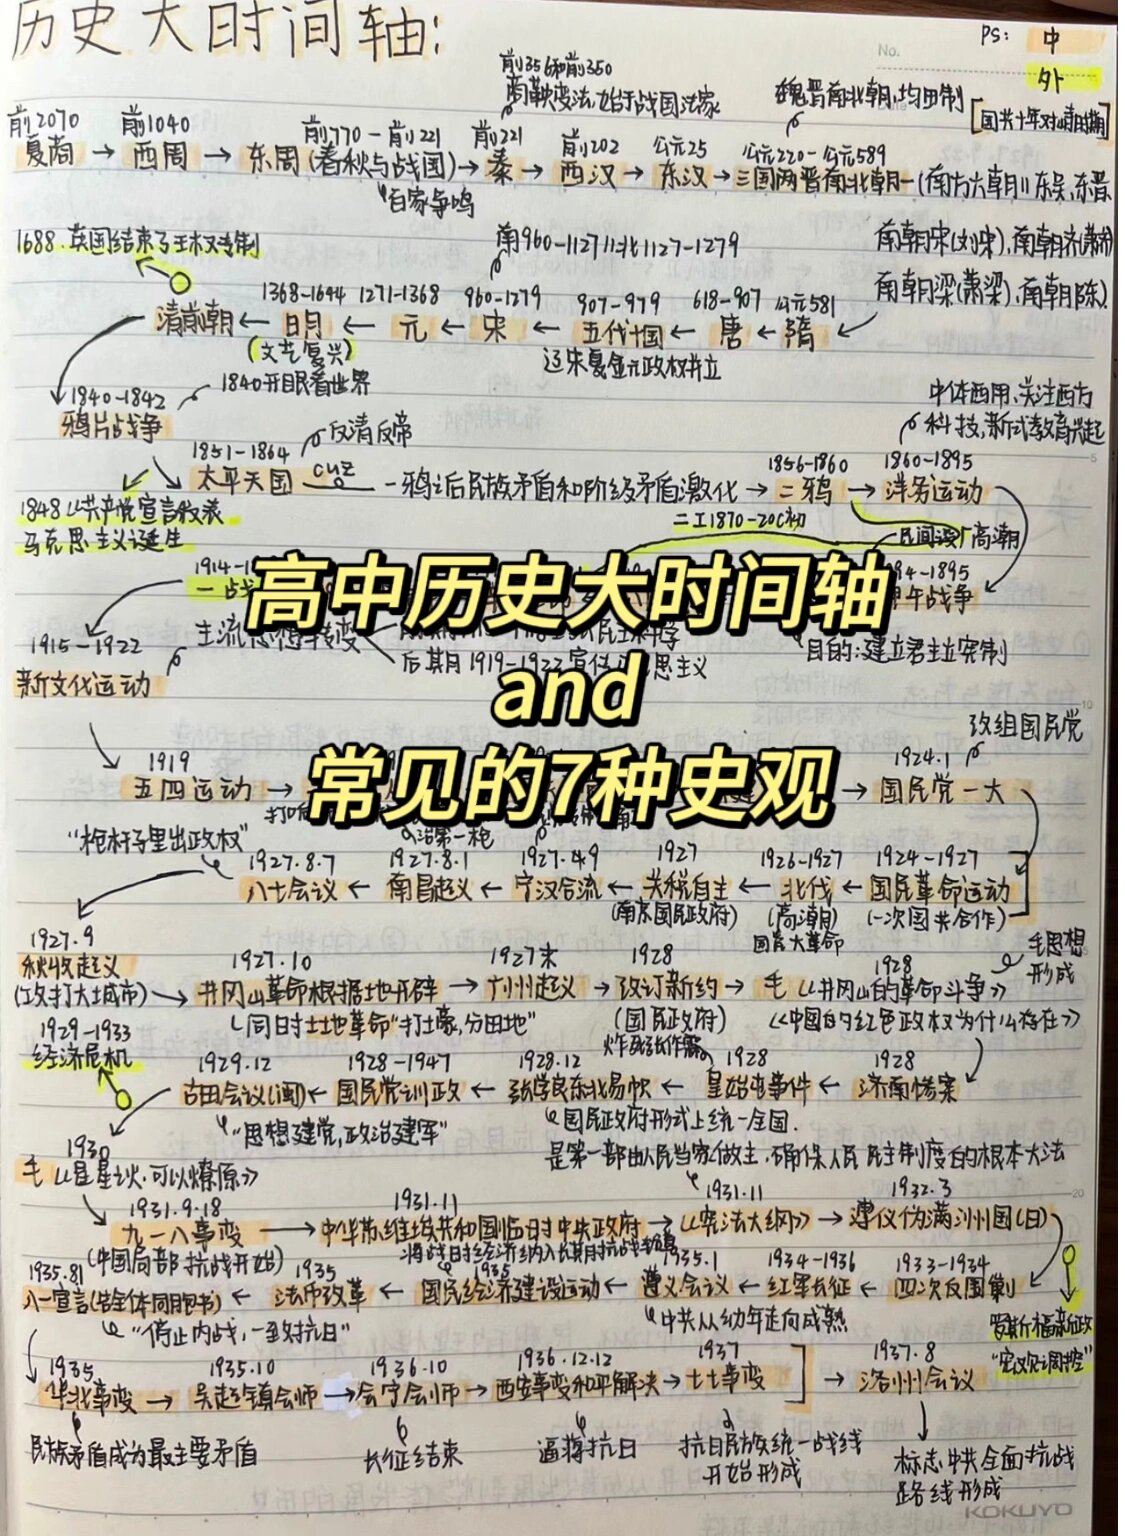 历史大时间轴:
PS: 中
No.
外
[国共十年对峙时期]
前356和前350
商鞅变法,始于战国法家
魏晋南北朝,均田制
前2070 前1040 前770-前221 前221 前202 公元25 公元220-公元589
夏商→西周→东周(春秋与战国)→秦→西汉→东汉→三国两晋南北朝-(南方六朝)东吴、东晋
百家争鸣
南朝宋(刘宋)、南朝齐(萧齐)
南朝梁(萧梁)、南朝陈)
1688.英国结束了王权专制
南960-1127北1127-1279
1368-1644 1271-1368 960-1279 907-979 618-907 公元581
清前朝←明←元←宋←五代十国←唐←隋
(文艺复兴)
辽宋夏金元政权并立
1840-1842
1840开眼看世界
鸦片战争
中体西用、关注西方
科技,新式教育兴起
1851-1864
反清反帝
1856-1860 1860-1895
太平天国 cuz 一鸦之后民族矛盾和阶级矛盾激化→二鸦→洋务运动
1848《共产党宣言》发表
马克思主义诞生
二工1870-20C初
民间设厂高潮
高中历史大时间轴
and
常见的7种史观
1914-1
一战
94-1895
甲午战争
目的:建立君主立宪制
1915-1922
主流思想转变
新文化运动
后期1919-1922宣传 思主义
改组国民党
1919
1924.1
五四运动→
→国民党一大
"枪杆子里出政权"
打响 第一枪
1927.8.7 1927.8.1 1927.4.9 1927 1926-1927 1924-1927
八七会议←南昌起义←宁汉合流←关税自主←北伐←国民革命运动
(南京国民政府) (高潮) (一次国共合作)
国民大革命
1927.9
秋收起义
(攻打大城市)
1927.10 1927末 1928 1928
毛思想
形成
井冈山革命根据地开辟→广州起义→改订新约→毛《井冈山的革命斗争》
同时土地革命"打土豪,分田地"
(国民政府)
《中国的红色政权为什么存在》
1929-1933
经济危机
炸死张作霖
1929.12 1928-1947 1928.12 1928 1928
古田会议(闽)←国民党训政←张学良东北易帜←皇姑屯事件←济南惨案
"思想建党,政治建军"
国民政府形式上统一全国.
1930
毛《星星之火,可以燎原》
是第一部由人民当家做主,确保人民民主制度的根本大法
1931.9.18 1931.11 1931.11 1932.3
九一八事变→中华苏维埃共和国临时中央政府→《宪法大纲》→建立伪满洲国(日)
(中国局部抗战开始)
将战时经济纳入长期抗战轨道
1935.81 1935 1935 1935.1 1934-1936 1933-1934
八一宣言(告全体同胞书)←法币改革←国民经济建设运动←遵义会议←红军长征←四次反围剿
"停止内战,一致抗日"
中共从幼年走向成熟
罗斯福新政
"宏观调控"
1935 1935.10 1936.10 1936.12.12 1937 1937.8
华北事变→吴起镇会师→会宁会师→西安事变和平解决→七七事变→洛川会议
民族矛盾成为最主要矛盾
长征结束
逼蒋抗日
抗日民族统一战线
开始形成
标志中共全面抗战
路线形成
KOKUYO